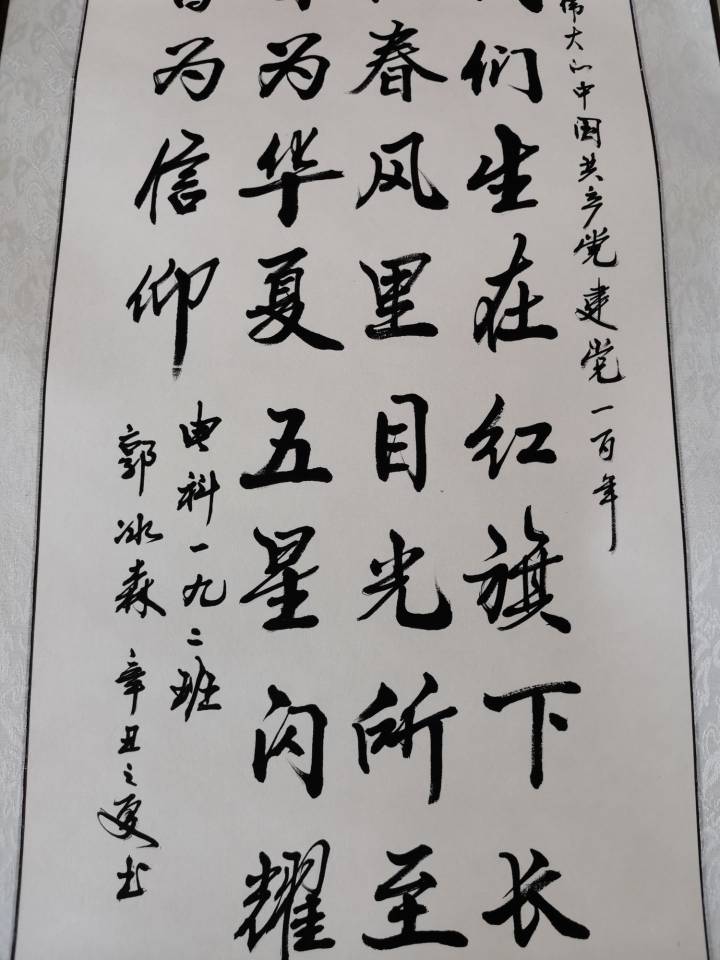 伟大的中国共产党建党一百年
们生在红旗下长
春风里目光所至
为华夏五星闪耀
为信仰
电科一九二班
郭冰森 辛丑之夏书